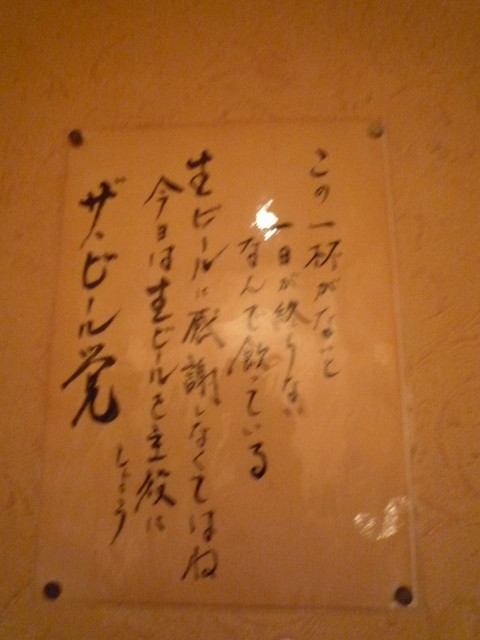 この一杯がないと
一日が終らない
なんて飲っている
生ビールに感謝しなくてはね
今日は生ビールを主役に
しよう
ザ・ビール党